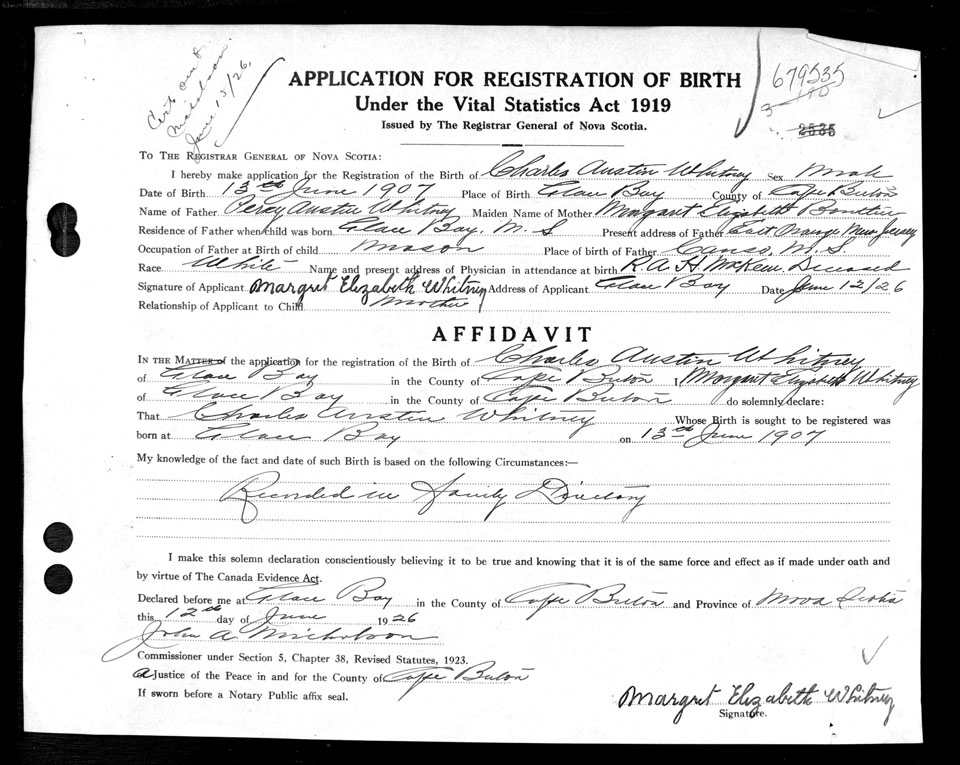 Cert. out
Nicholson
June 15/26.
679535
3 190
2535
APPLICATION FOR REGISTRATION OF BIRTH
Under the Vital Statistics Act 1919
Issued by The Registrar General of Nova Scotia.
TO THE REGISTRAR GENERAL OF NOVA SCOTIA:
I hereby make application for the Registration of the Birth of Charles Austin Whitney Sex Male
Date of Birth 13th June 1907 Place of Birth Glace Bay County of Cape Breton
Name of Father Percy Austin Whitney Maiden Name of Mother Margaret Elizabeth
Residence of Father when child was born Glace Bay, N.S Present address of Father East Orange New Jersey
Occupation of Father at Birth of child Mason Place of birth of Father Canso, N.S
Race White Name and present address of Physician in attendance at birth R.A.H. McKeen Deceased
Signature of Applicant Margret Elizabeth Whitney Address of Applicant Glace Bay Date June 12/26
Relationship of Applicant to Child Mother
AFFIDAVIT
IN THE MATTER of the application for the registration of the Birth of Charles Austin Whitney
of Glace Bay in the County of Cape Breton I, Margaret Elizabeth Whitney
of Glace Bay in the County of Cape Breton do solemnly declare:
That Charles Austin Whitney Whose Birth is sought to be registered was
born at Glace Bay on 13th June 1907
My knowledge of the fact and date of such Birth is based on the following Circumstances:—
Recorded in Family Directory
I make this solemn declaration conscientiously believing it to be true and knowing that it is of the same force and effect as if made under oath and
by virtue of The Canada Evidence Act.
Declared before me at Glace Bay in the County of Cape Breton and Province of Nova Scotia
this 12th day of June 1926
John A Nicholson
Commissioner under Section 5, Chapter 38, Revised Statutes, 1923.
A Justice of the Peace in and for the County of Cape Breton
If sworn before a Notary Public affix seal.
Margret Elizabeth Whitney
Signature.